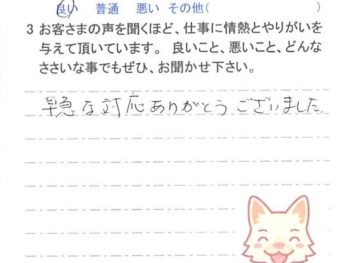 良い 普通 悪い その他( )
3 お客さまの声を聞くほど、仕事に情熱とやりがいを
与えて頂いています。 良いこと、悪いこと、どんな
ささいな事でもぜひ、お聞かせ下さい。
早急な対応ありがとうございました